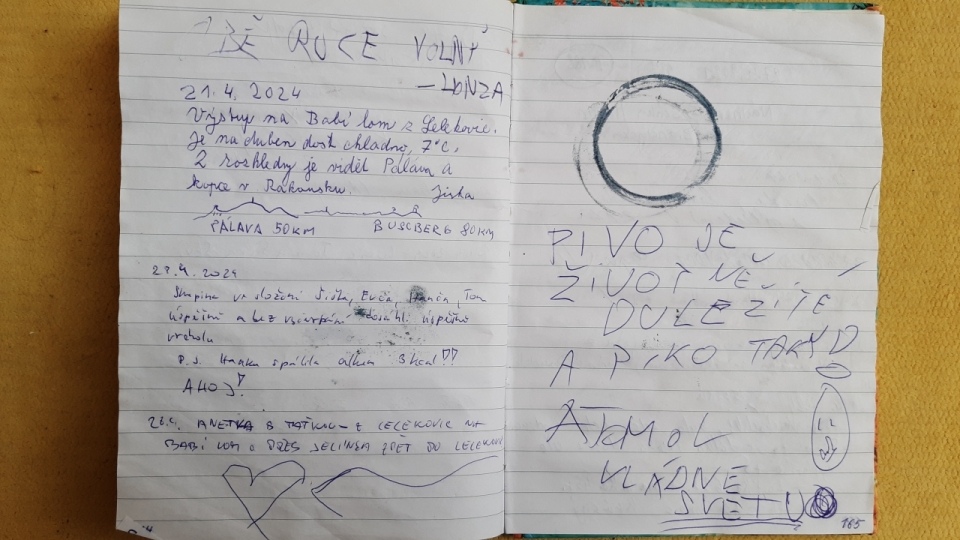 BĚ RUCE VOLNÝ
— HONZA
21.4. 2024
Výstup na Babí lom z Lelekovic.
Je na duben dost chladno, 7°C.
Z rozhledny je vidět Pálava a
kopce v Rakousku. Jirka
PÁLAVA 50KM BUSCBERG 80KM
27.4. 2024
Skupina ve složení Evča, Tom
úspěšně a bez úspěšně
vrcholu
P.S. Hanka spálila 3 kcal!!
AHOJ!
26.4. ANETKA S TAŤKOU – Z LELEKOVIC NA
BABÍ LOM A PŘES ZPĚT DO LELEKOVIC
PIVO JE
ŽIVOTNĚ
DŮLEŽITÉ
A PÍKO TAKY :D
ATOMOL
VLÁDNE
SVĚTU
165